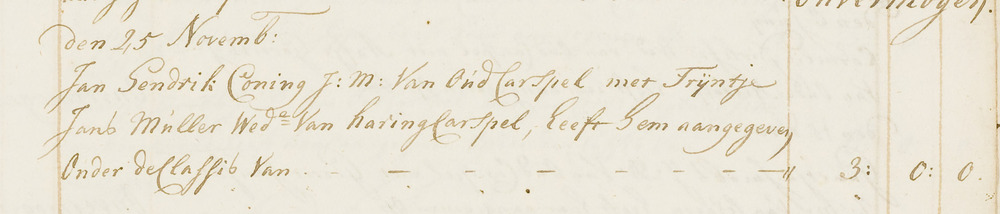 onvermogen.
den 25 Novemb:
Jan Hendrik Coning J: M: Van Oúd Carspel met Trÿntje
Jans Múller Wed.e Van haring Carspel, heeft hem aangegeven
Onder de Classis Van . - - - - - - - - " 3: 0: 0.